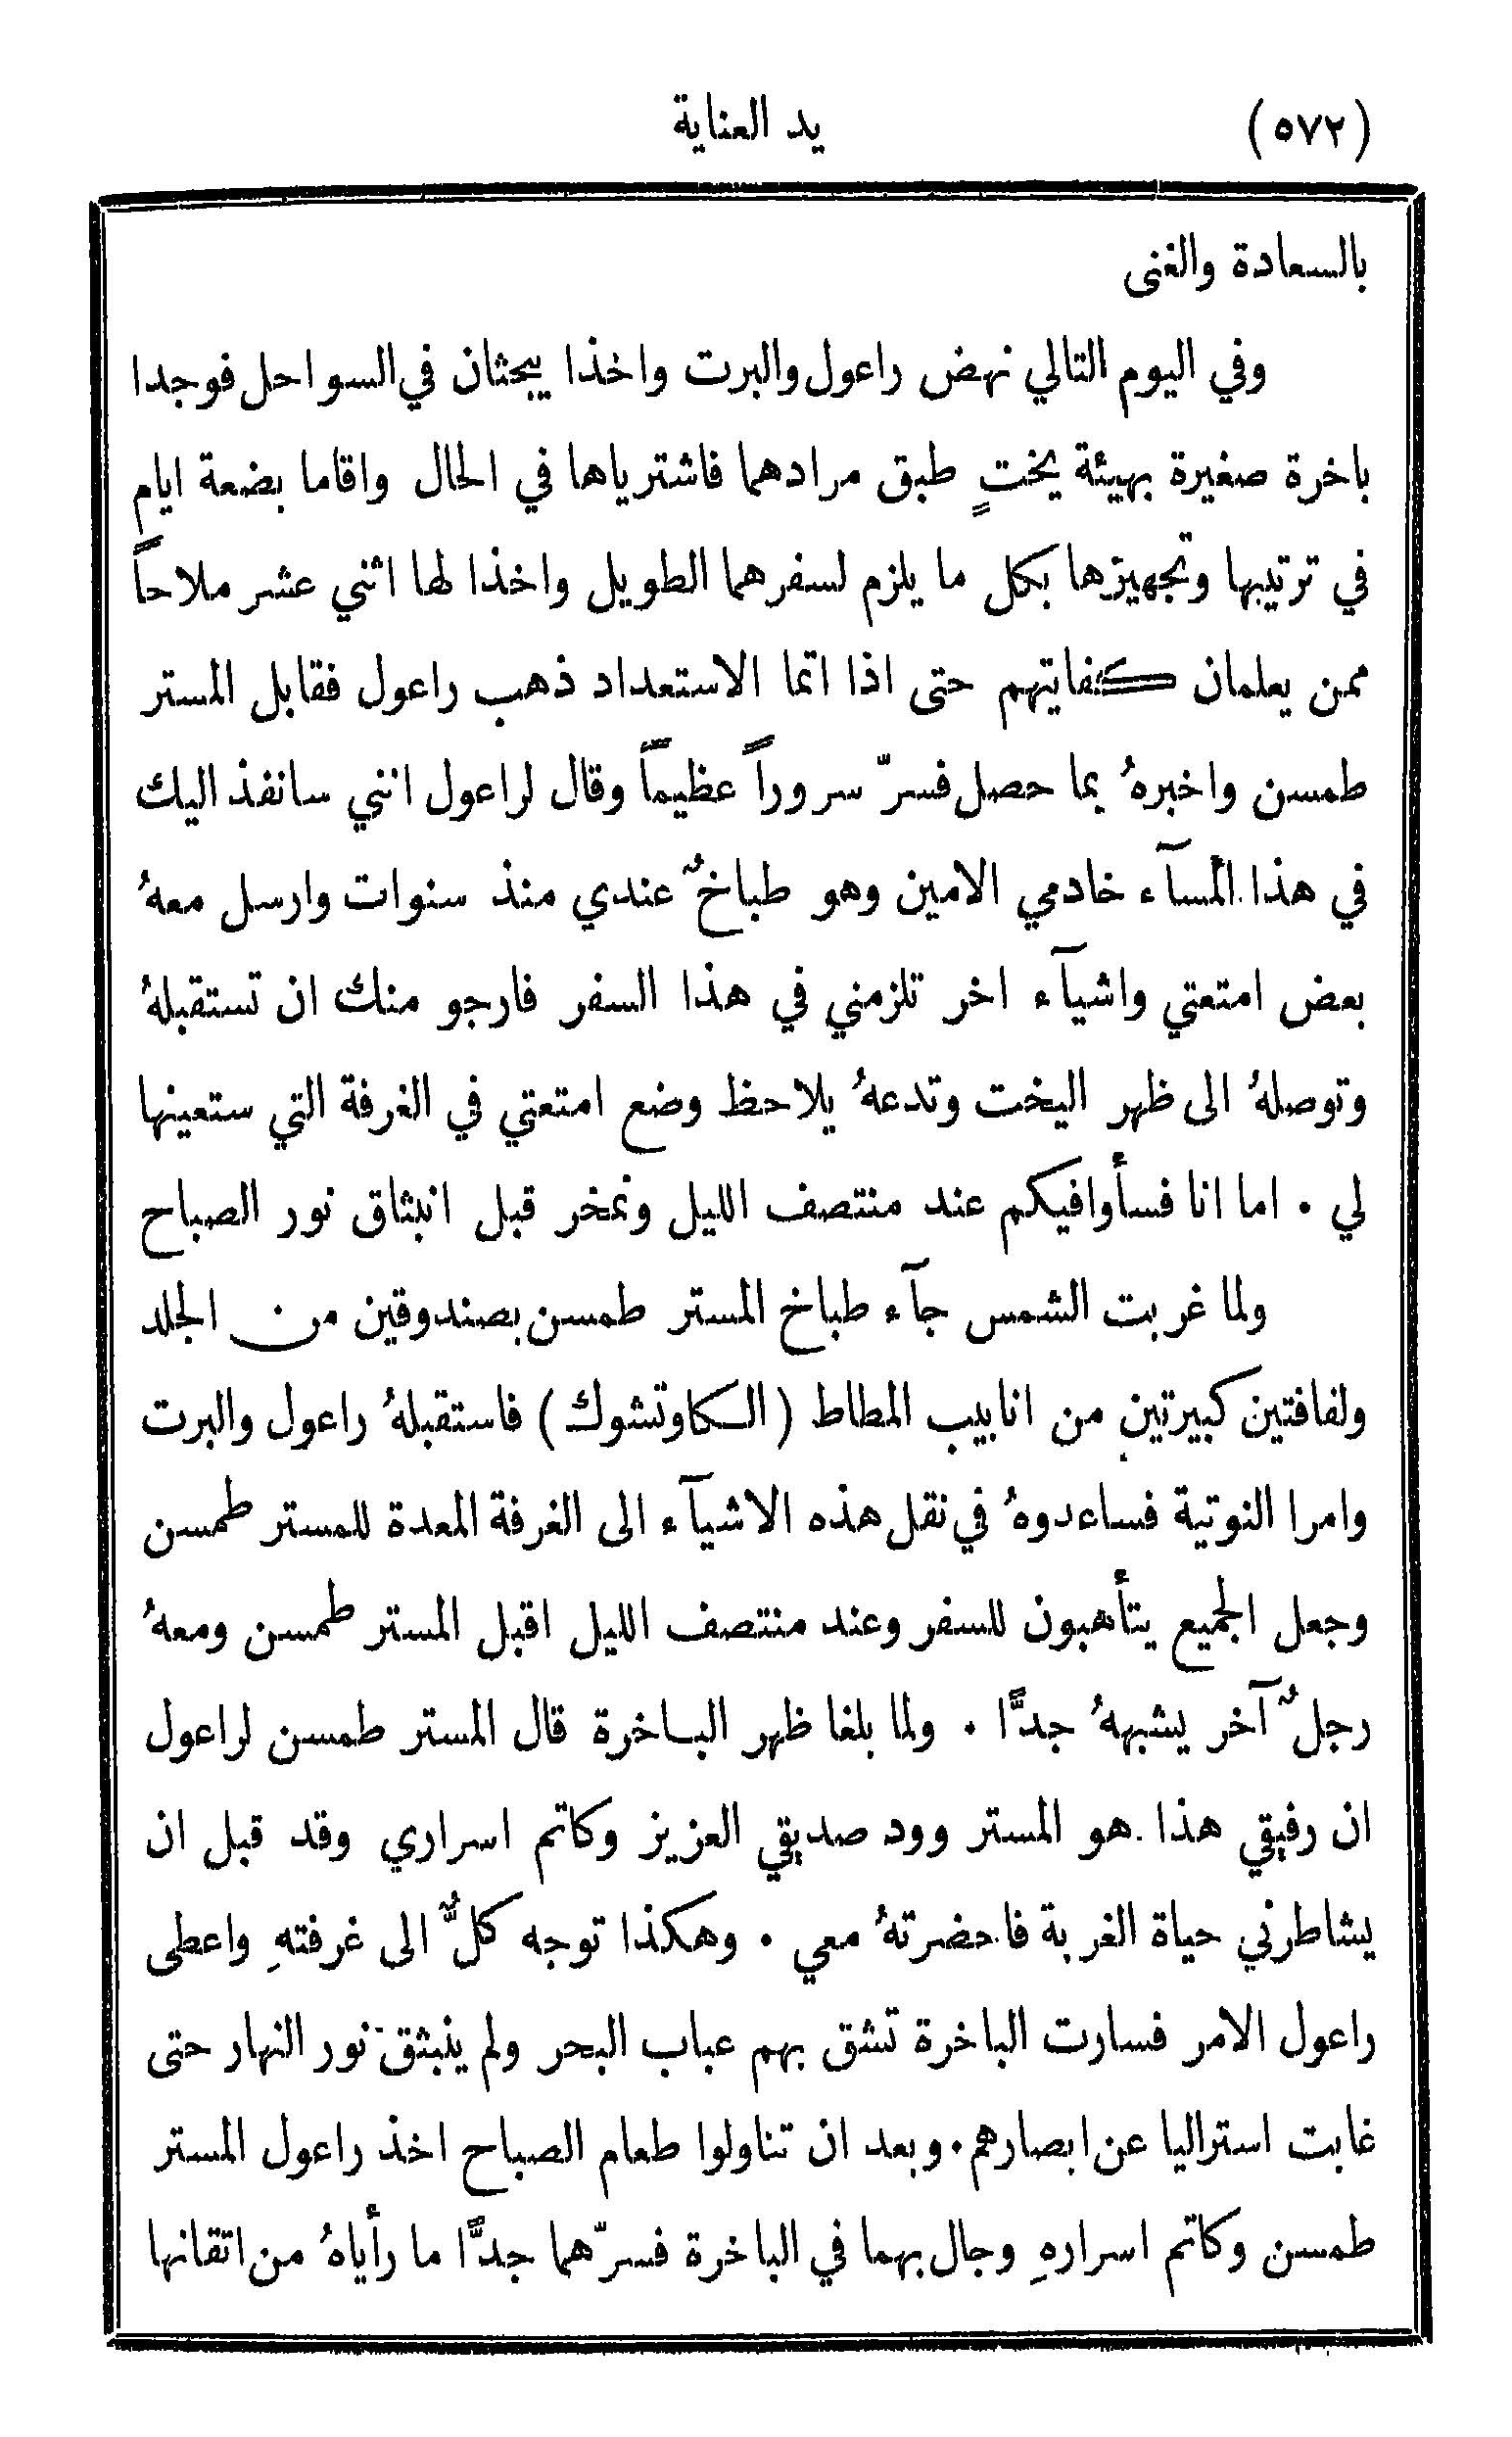 (٥٧٢) يد العناية
بالسعادة والغنى
وفي اليوم التالي نهض راعول والبرت واخذا يبحثان في السواحل فوجدا
باخرة صغيرة بهيئة يختٍ طبق مرادهما فاشترياها في الحال واقاما بضعة ايام
في ترتيبها وتجهيزها بكل ما يلزم لسفرهما الطويل واخذا لها اثني عشر ملاحاً
ممن يعلمان كفايتهم حتى اذا اتما الاستعداد ذهب راعول فقابل المستر
طمسن واخبرهُ بما حصل فسرّ سروراً عظيماً وقال لراعول انني سانفذ اليك
في هذا المسآء خادمي الامين وهو طباخٌ عندي منذ سنوات وارسل معهُ
بعض امتعتي واشيآء اخر تلزمني في هذا السفر فارجو منك ان تستقبلهُ
وتوصلهُ الى ظهر اليخت وتدعهُ يلاحظ وضع امتعتي في الغرفة التي ستعينها
لي . اما انا فسأوافيكم عند منتصف الليل ونمخر قبل انبثاق نور الصباح
ولما غربت الشمس جآء طباخ المستر طمسن بصندوقين من الجلد
ولفافتين كبيرتين من انابيب المطاط (الكاوتشوك) فاستقبلهُ راعول والبرت
وامرا النوتية فساعدوهُ في نقل هذه الاشيآء الى الغرفة المعدة للمستر طمسن
وجعل الجميع يتأهبون للسفر وعند منتصف الليل اقبل المستر طمسن ومعهُ
رجلٌ آخر يشبههُ جدًّا . ولما بلغا ظهر الباخرة قال المستر طمسن لراعول
ان رفيقي هذا هو المستر وود صديقي العزيز وكاتم اسراري وقد قبل ان
يشاطرني حياة الغربة فاحضرتهُ معي . وهكذا توجه كلٌّ الى غرفتهِ واعطى
راعول الامر فسارت الباخرة تشق بهم عباب البحر ولم ينبثق نور النهار حتى
غابت استراليا عن ابصارهم . وبعد ان تناولوا طعام الصباح اخذ راعول المستر
طمسن وكاتم اسرارهِ وجال بهما في الباخرة فسرّهما جدًّا ما رأياهُ من اتقانها